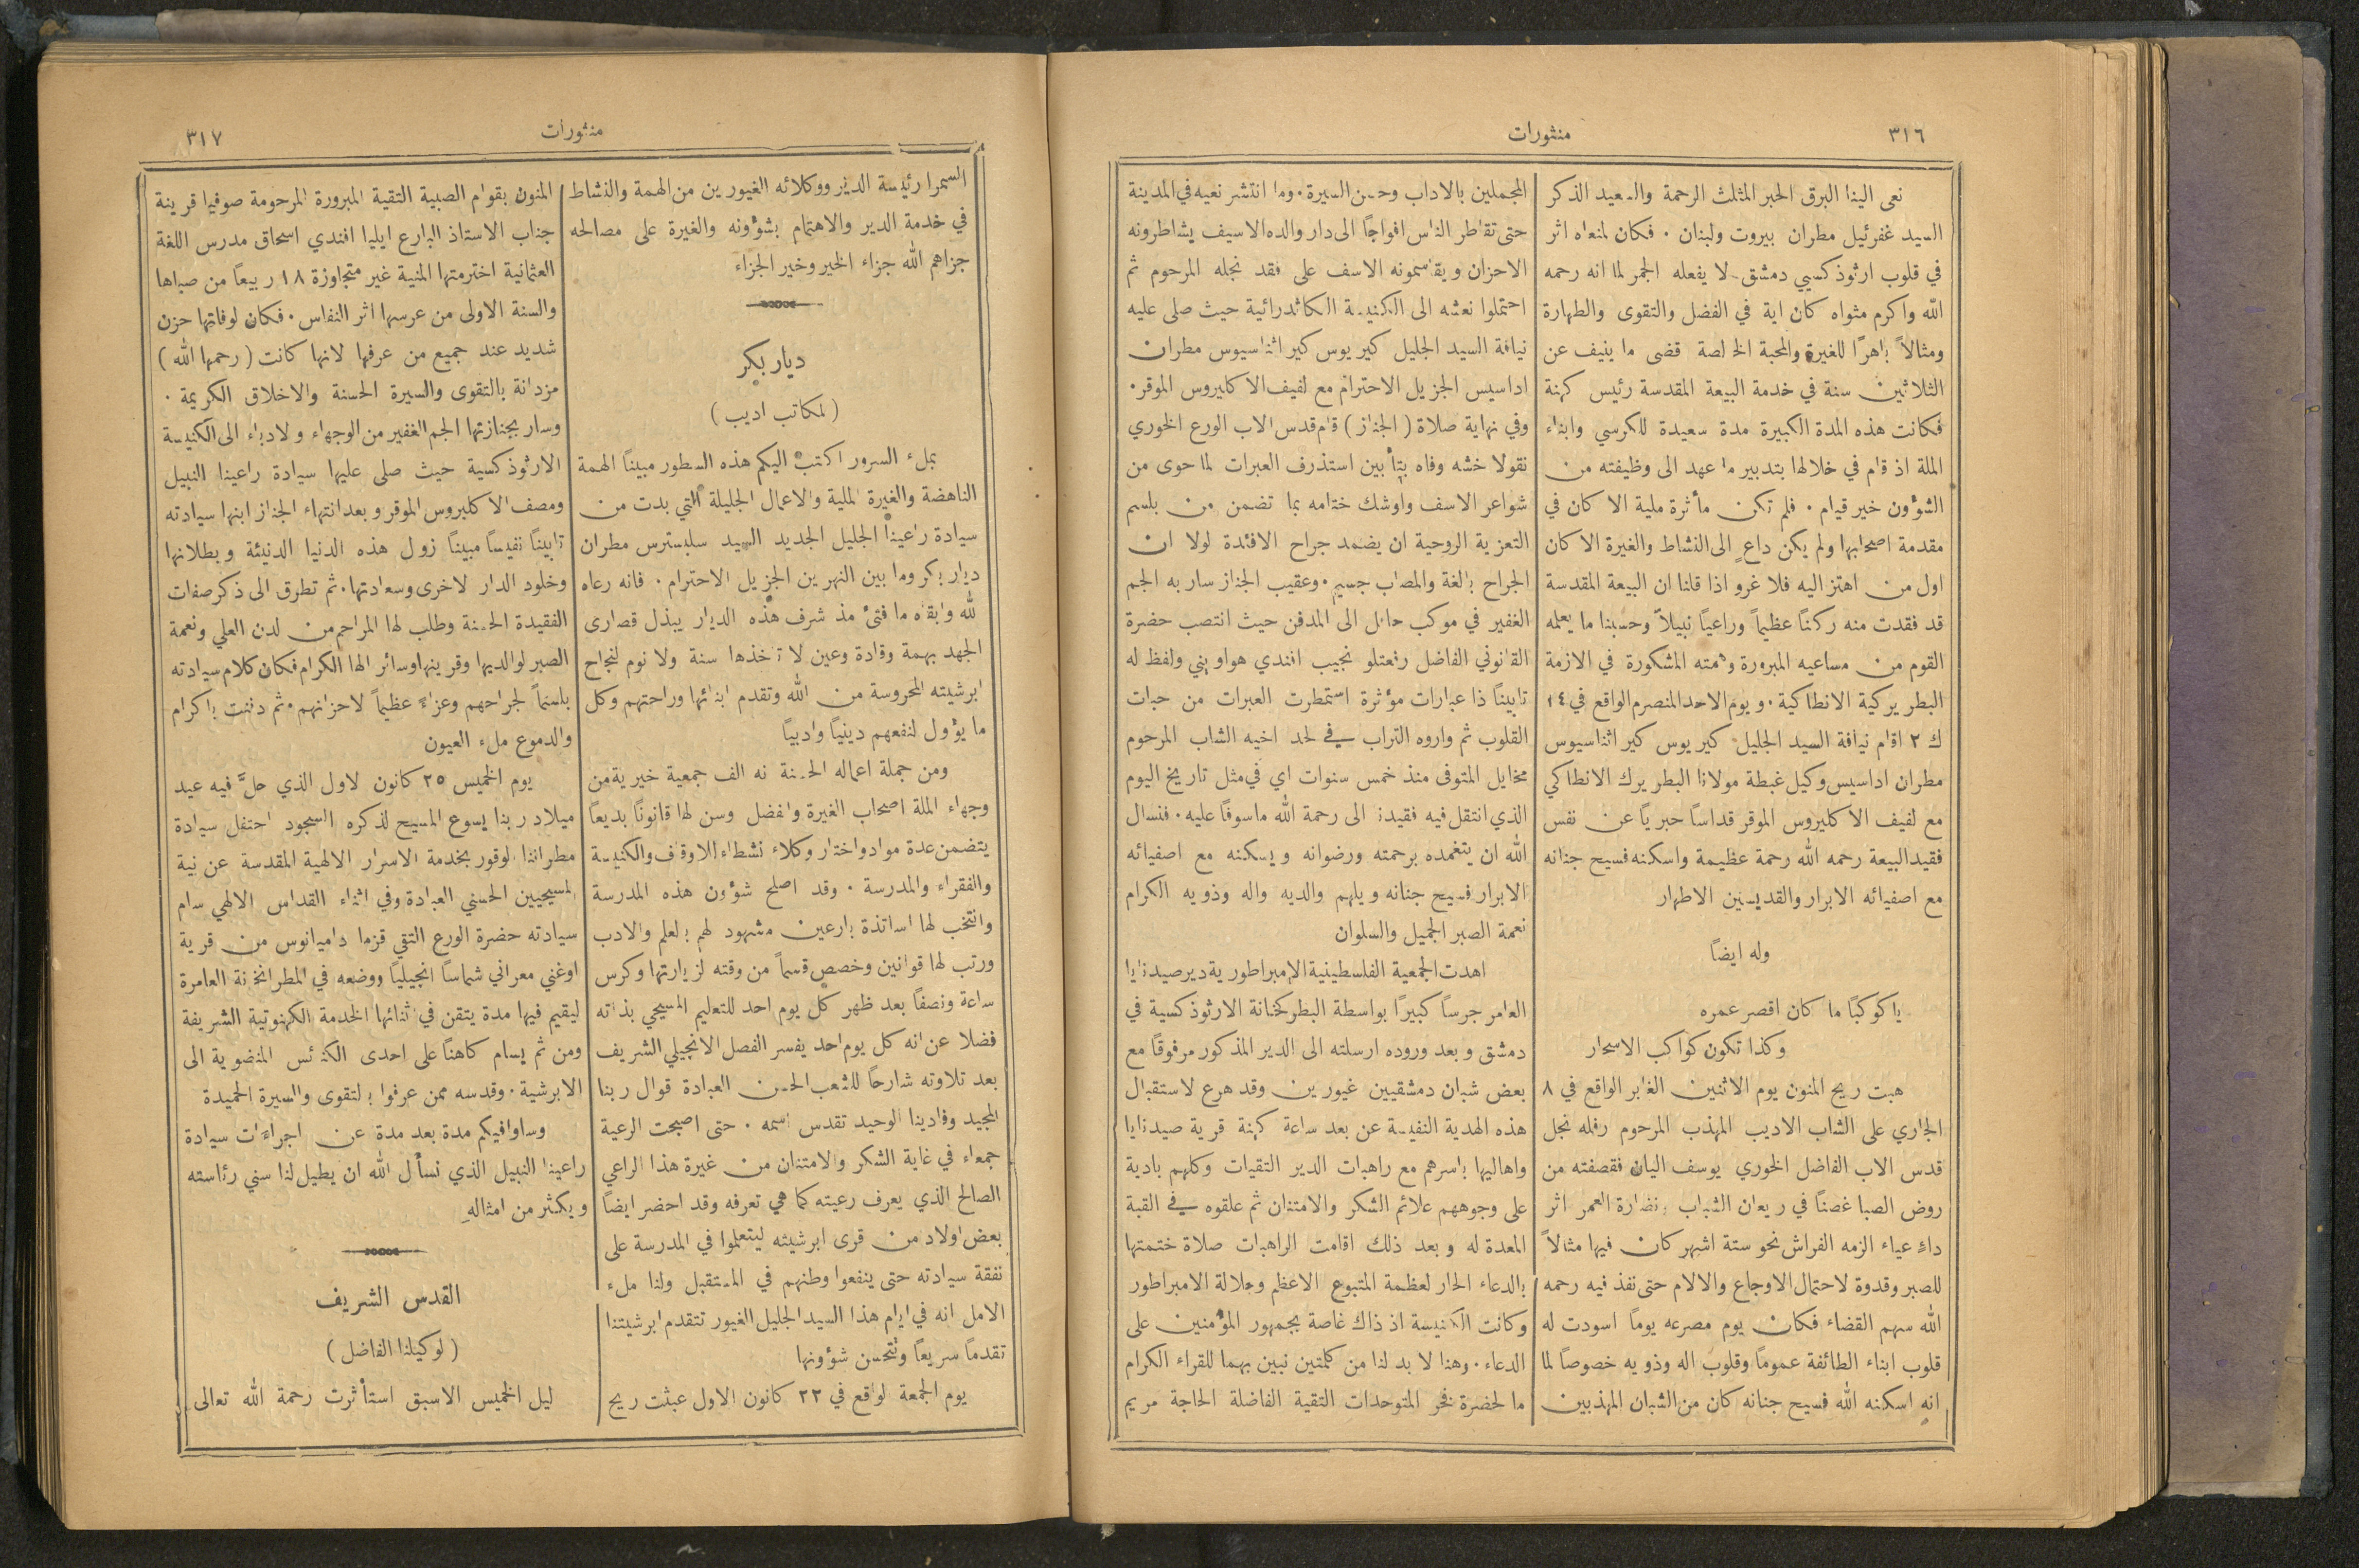 ٣١٦
منثورات
نعى الينا البرق الحبر المثلث الرحمة والسعيد الذكر
السيد غفرئيل مطران بيروت ولبنان . فكان لمنعاه اثر
في قلوب ارثوذكسيي دمشق لا يفعله الجمر لما انه رحمه
الله واكرم مثواه كان اية في الفضل والتقوى والطهارة
ومثالاً باهرًا للغيرة والمحبة الخالصة قضى ما ينيف عن
الثلاثين سنة في خدمة البيعة المقدسة رئيس كهنة
فكانت هذه المدة الكبيرة مدة سعيدة للكرسي وابناء
الملة اذ قام في خلالها بتدبير ما عهد الى وظيفته من
الشؤون خير قيام . فلم تكن مأثرة ملية الا كان في
مقدمة اصحابها ولم يكن داعٍ الى النشاط والغيرة الا كان
اول من اهتز اليه فلا غرو اذا قلنا ان البيعة المقدسة
قد فقدت منه ركنًا عظيماً وراعياً نبيلاً وحسبنا ما يعلمه
القوم من مساعيه المبرورة وهمته المشكورة في الازمة
البطريركية الانطاكية . ويوم الاحد المنصرم الواقع في ١٤
ك ٢ اقام نيافة السيد الجليل كيريوس كير اثناسيوس
مطران اداسيس وكيل غبطة مولانا البطريرك الانطاكي
مع لفيف الاكليروس الموقر قداسًا حبريًا عن نفس
فقيد البيعة رحمه الله رحمة عظيمة واسكنه فسيح جنانه
مع اصفيائه الابرار والقديسين الاطهار
وله ايضاً
ياكوكبًا ما كان اقصر عمره
وكذا تكون كواكب الاسحار
هبت ريح المنون يوم الاثنين الغابر الواقع في ٨
الجاري على الشاب الاديب المهذب المرحوم رفله نجل
قدس الاب الفاضل الخوري يوسف اليان فقصفته من
روض الصبا غصنًا في ريعان الشباب ونضارة العمر اثر
داءٍ عياء الزمه الفراش نحو ستة اشهر كان فيها مثالاً
للصبر وقدوة لاحتمال الاوجاع والالام حتى نفذ فيه رحمه
الله سهم القضاء فكان يوم مصرعه يوماً اسودت له
قلوب ابناء الطائفة عموماً وقلوب اله وذويه خصوصاً لما
انه اسكنه الله فسيح جنانه كان من الشبان المهذبين
المجملين بالاداب وحسن السيرة . وما انتشر نعيه في المدينة
حتى تقاطر الناس افواجًا الى دار والده الاسيف يشاطرونه
الاحزان ويقاسمونه الاسف على فقد نجله المرحوم ثم
احتملوا نعشه الى الكنيسة الكاثدرائية حيث صلى عليه
نيافة السيد الجليل كيريوس كير اثناسيوس مطران
اداسيس الجزيل الاحترام مع لفيف الاكليروس الموقر .
وفي نهاية صلاة ( الجناز ) قام قدس الاب الورع الخوري
نقولا خشه وفاه بتأبين استذرف العبرات لما حوى من
شواعر الاسف واوشك ختامه بما تضمن من بلسم
التعزية الروحية ان يضمد جراح الافئدة لولا ان
الجراح بالغة والمصاب جسيم . وعقيب الجناز سار به الجم
الغفير في موكب حافل الى المدفن حيث انتصب حضرة
القانوني الفاضل رفعتلو نجيب افندي هواويني ولفظ له
تابينًا ذا عبارات مؤثرة استمطرت العبرات من حبات
القلوب ثم واروه التراب في لحد اخيه الشاب المرحوم
مخايل المتوفى منذ خمس سنوات اي في مثل تاريخ اليوم
الذي انتقل فيه فقيدنا الى رحمة الله ماسوفًا عليه . فنسال
الله ان يتغمده برحمته ورضوانه ويسكنه مع اصفيائه
الابرار فسيح جنانه ويلهم والديه واله وذويه الكرام
نعمة الصبر الجميل والسلوان
اهدت الجمعية الفلسطينية الامبراطورية دير صيدنايا
العامر جرسًا كبيرًا بواسطة البطركخانة الارثوذكسية في
دمشق وبعد وروده ارسلته الى الدير المذكور مرفوقًا مع
بعض شبان دمشقيين غيورين وقد هرع لاستقبال
هذه الهدية النفيسة عن بعد ساعة كهنة قرية صيدنايا
واهاليها باسرهم مع راهبات الدير التقيات وكلهم بادية
على وجوههم علائم الشكر والامتنان ثم علقوه في القبة
المعدة له وبعد ذلك اقامت الراهبات صلاة ختمتها
بالدعاء الحار لعظمة المتبوع الاعظم وجلالة الامبراطور
وكانت الكنيسة اذ ذاك غاصة بجمهور المؤمنين على
الدعاء . وهنا لا بد لنا من كلمتين نبين بهما للقراء الكرام
ما لحضرة فخر المتوحدات التقية الفاضلة الحاجة مريم
منثورات
٣١٧
السمرا رئيسة الدير ووكلائه الغيورين من الهمة والنشاط
في خدمة الدير والاهتمام بشؤونه والغيرة على مصالحه
جزاهم الله جزاء الخير وخير الجزاء
ديار بكر
( لمكاتب اديب )
بملء السرور اكتب اليكم هذه السطور مبينًا الهمة
الناهضة والغيرة الملية والاعمال الجليلة التي بدت من
سيادة راعينا الجليل الجديد السيد سلبسترس مطران
ديار بكر وما بين النهرين الجزيل الاحترام . فانه رعاه
لله وابقاه ما فتئ مذ شرف هذه الديار يبذل قصارى
الجهد بهمة وقادة وعين لا تاخذها سنة ولا نوم لنجاح
ابرشيته المحروسة من الله وتقدم ابنائها وراحتهم وكل
ما يؤول لنفعهم دينيًا وادبيًا
ومن جملة اعماله الحسنة انه الف جمعية خيرية من
وجهاء الملة اصحاب الغيرة والفضل وسن لها قانونًا بديعًا
يتضمن عدة مواد واختار وكلاء نشطاء للاوقاف والكنيسة
والفقراء والمدرسة . وقد اصلح شؤون هذه المدرسة
وانتخب لها اساتذة بارعين مشهود لهم بالعلم والادب
ورتب لها قوانين وخصص قسماً من وقته لزيارتها وكرس
ساعة ونصفًا بعد ظهر كل يوم احد للتعليم المسيحي بذاته
فضلا عن انه كل يوم احد يفسر الفصل الانجيلي الشريف
بعد تلاوته شارحًا للشعب الحسن العبادة قوال ربنا
المجيد وفادينا الوحيد تقدس اسمه . حتى اصبحت الرعية
جمعاء في غاية الشكر والامتنان من غيرة هذا الراعي
الصالح الذي يعرف رعيته كما هي تعرفه وقد احضر ايضاً
بعض اولاد من قرى ابرشيته ليتعلموا في المدرسة على
نفقة سيادته حتى ينفعوا وطنهم في المستقبل ولنا ملء
الامل انه في ايام هذا السيد الجليل الغيور تتقدم ابرشيتنا
تقدماً سريعاً وتتحسن شؤونها
يوم الجمعة لواقع في ٢٢ كانون الاول عبثت ريح
المنون بقوام الصبية التقية المبرورة المرحومة صوفيا قرينة
جناب الاستاذ البارع ايليا افندي اسحاق مدرس اللغة
العثمانية اخترمتها المنية غير متجاوزة ١٨ ربيعاً من صباها
والسنة الاولى من عرسها اثر النفاس . فكان لوفاتها حزن
شديد عند جميع من عرفها لانها كانت ( رحمها الله )
مزدانة بالتقوى والسيرة الحسنة والاخلاق الكريمة .
وسار بجنازتها الجم الغفير من الوجهاء ولادباء الى الكنيسة
الارثوذكسية حيث صلى عليها سيادة راعينا النبيل
ومصف الاكليروس الموقر وبعد انتهاء الجناز ابنها سيادته
تابينًا نفيساً مبينًا زول هذه الدنيا الدنيئة وبطلانها
وخلود الدار لاخرى وسعادتها . ثم تطرق الى ذكر صفات
الفقيدة الحسنة وطلب لها المراحم من لدن العلي ونعمة
الصبر لوالديها وقرينها وسائر الها الكرام فكان كلام سيادته
بلسماً لجراحهم وعزاءً عظيماً لاحزانهم . ثم دفنت باكرام
والدموع ملء العيون
يوم الخميس ٢٥ كانون لاول الذي حلَّ فيه عيد
ميلاد ربنا يسوع المسيح لذكره السجود احتفل سيادة
مطراننا الوقور بخدمة الاسرار الالهية المقدسة عن نية
المسيحيين الحسني العبادة وفي اثناء القداس الالهي سام
سيادته حضرة الورع التقي قزما داميانوس من قرية
اوغني معراني شماساً انجيليًا ووضعه في المطرانخانة العامرة
ليقيم فيها مدة يتقن في اثنائها الخدمة الكهنوتية الشريفة
ومن ثم يسام كاهنًا على احدى الكنائس المنضوية الى
الابرشية . وقدسه ممن عرفوا بالتقوى والسيرة الحميدة
وساوافيكم مدة بعد مدة عن اجراءات سيادة
راعينا النبيل الذي نسأل الله ان يطيل لنا سني رئاسته
ويكثر من امثالهِ
القدس الشريف
( لوكيلنا الفاضل )
ليل الخميس الاسبق استأثرت رحمة الله تعالى